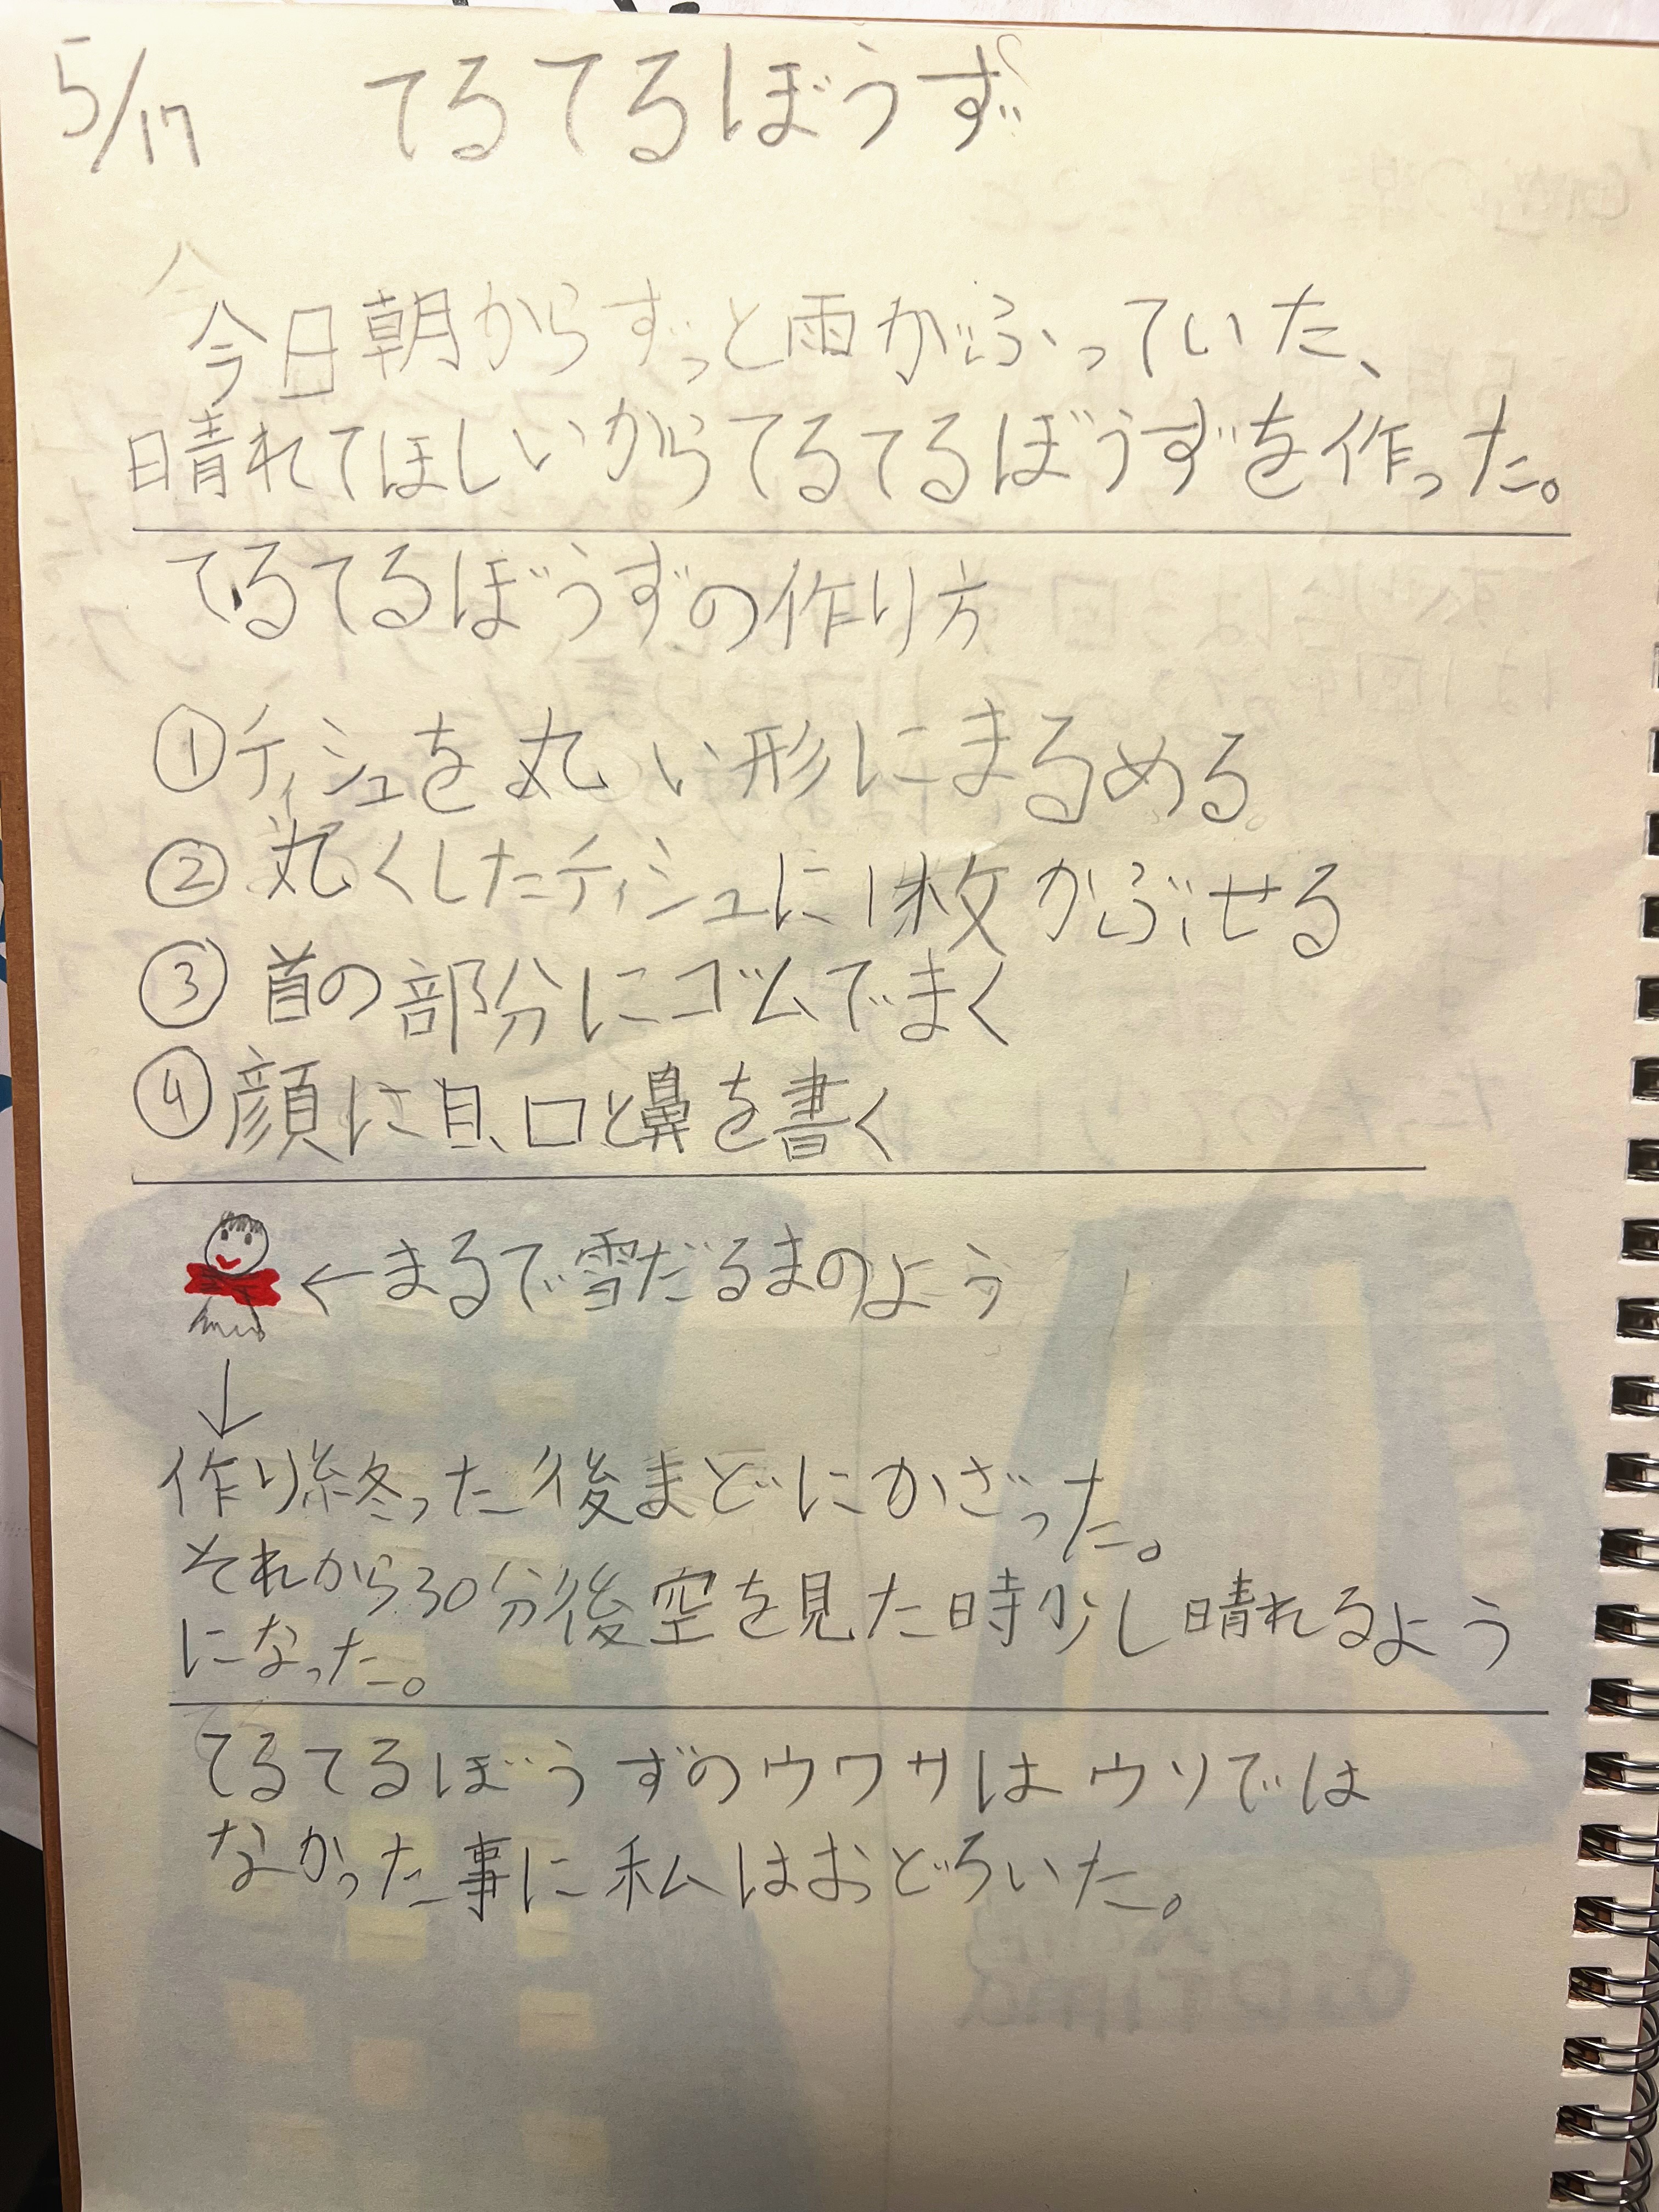 5/17 てるてるぼうず
今日朝からずっと雨がふっていた、
晴れてほしいからてるてるぼうずを作った。
てるてるぼうずの作り方
①ティシュを丸い形にまるめる。
②丸くしたティシュに1枚かぶせる
③首の部分にゴムでまく
④顔に目、口と鼻を書く
←まるで雪だるまのよう
↓
作り終った後まどにかざった。
それから30分後空を見た時少し晴れるよう
になった。
てるてるぼうずのウワサはウソでは
なかった事に私はおどろいた。